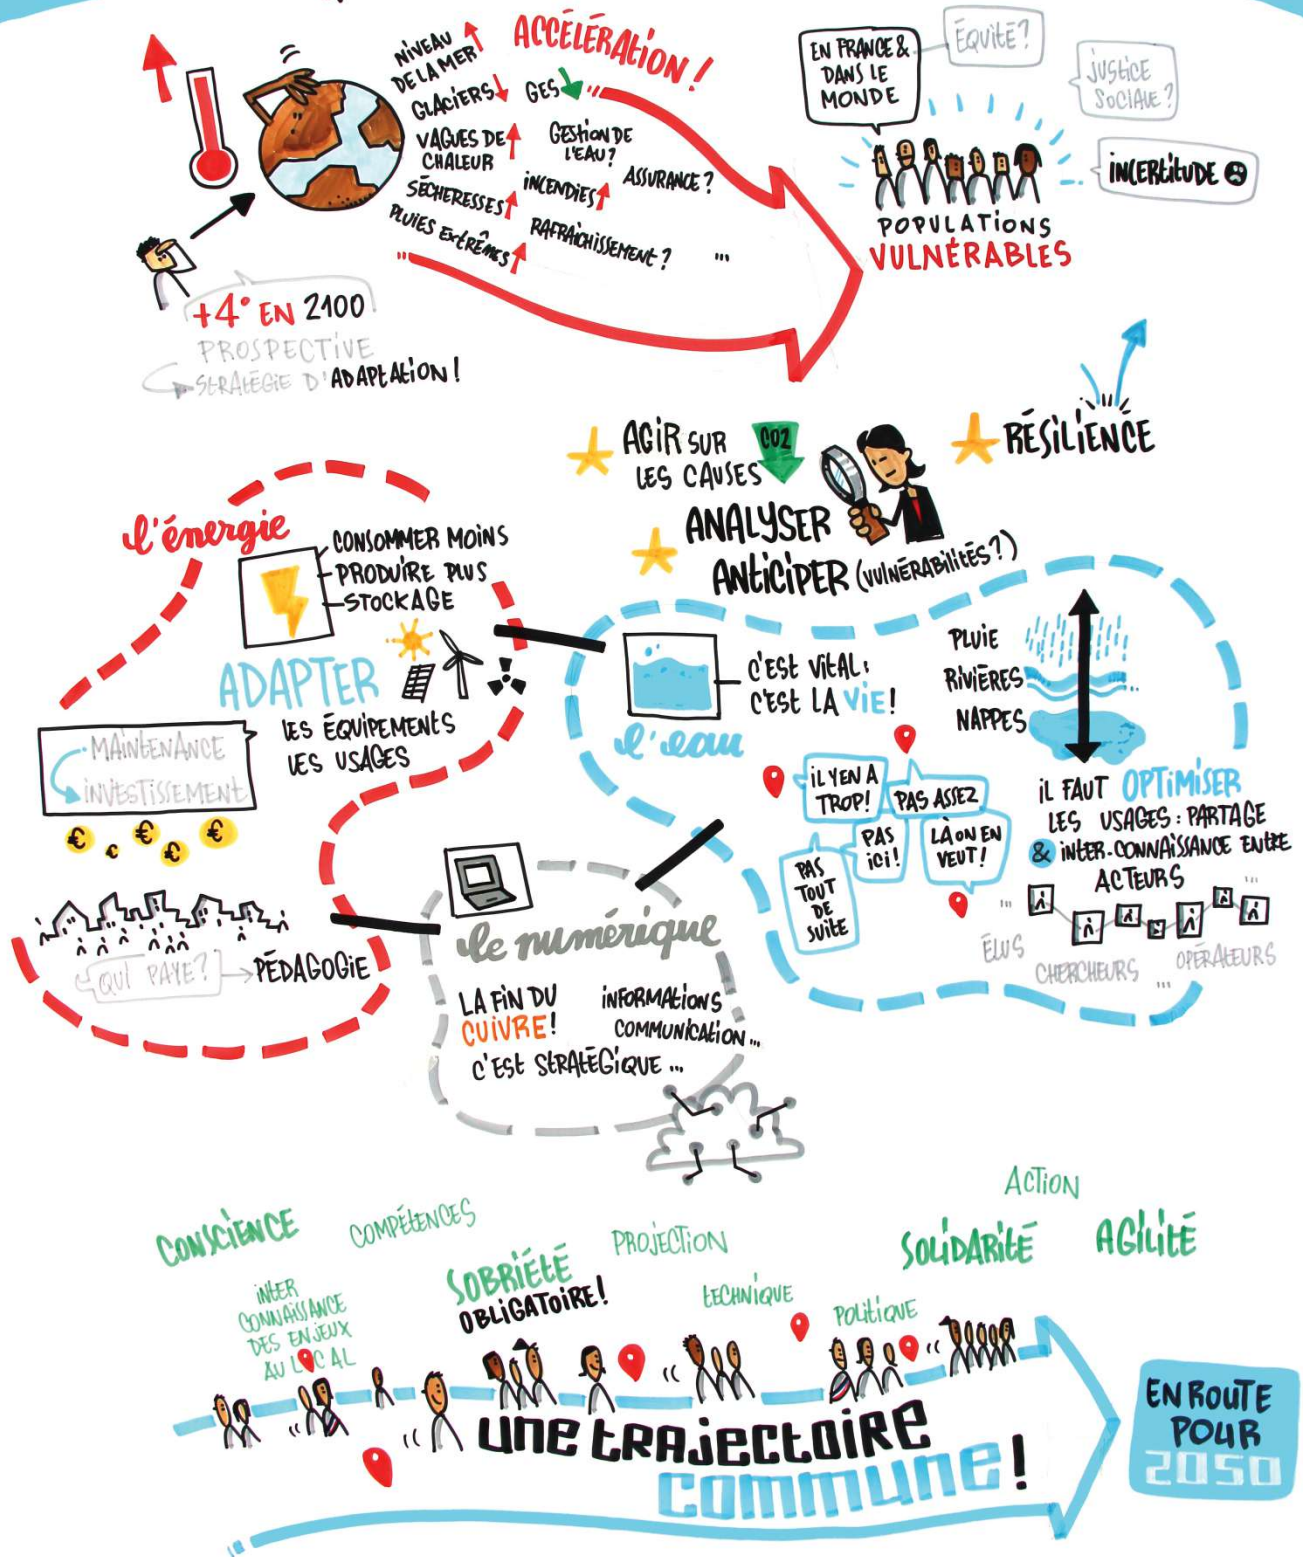 NIVEAU
DE LA MER
GLACIERS
VAGUES DE
CHALEUR
SÉCHERESSES
PLUIES EXTRÊMES
ACCÉLÉRATION !
GES
GESTION DE
L'EAU ?
INCENDIES
ASSURANCE ?
RAFRAICHISSEMENT ?
...
EN FRANCE &
DANS LE
MONDE
ÉQUITÉ ?
JUSTICE
SOCIALE ?
INCERTITUDE
POPULATIONS
VULNÉRABLES
+4° EN 2100
PROSPECTIVE
STRATÉGIE D'ADAPTATION !
AGIR SUR
LES CAUSES
CO2
RÉSILIENCE
ANALYSER
ANTICIPER (VULNÉRABILITÉS ?)
l'énergie
CONSOMMER MOINS
PRODUIRE PLUS
STOCKAGE
ADAPTER
LES ÉQUIPEMENTS
LES USAGES
MAINTENANCE
INVESTISSEMENT
€
€
€
€
QUI PAYE ?
PÉDAGOGIE
l'eau
C'EST VITAL :
C'EST LA VIE !
PLUIE
RIVIÈRES
NAPPES
IL Y EN A
TROP !
PAS ASSEZ
PAS
ICI !
LÀ ON EN
VEUT !
PAS
TOUT
DE
SUITE
IL FAUT OPTIMISER
LES USAGES : PARTAGE
& INTER-CONNAISSANCE ENTRE
ACTEURS
...
...
ÉLUS
CHERCHEURS
...
OPÉRATEURS
le numérique
LA FIN DU
CUIVRE !
C'EST STRATÉGIQUE ...
INFORMATIONS
COMMUNICATION ...
CONSCIENCE
COMPÉTENCES
INTER
CONNAISSANCE
DES ENJEUX
AU LOCAL
SOBRIÉTÉ
OBLIGATOIRE !
PROJECTION
TECHNIQUE
POLITIQUE
SOLIDARITÉ
ACTION
AGILITÉ
UNE TRAJECTOIRE
COMMUNE !
EN ROUTE
POUR
2050